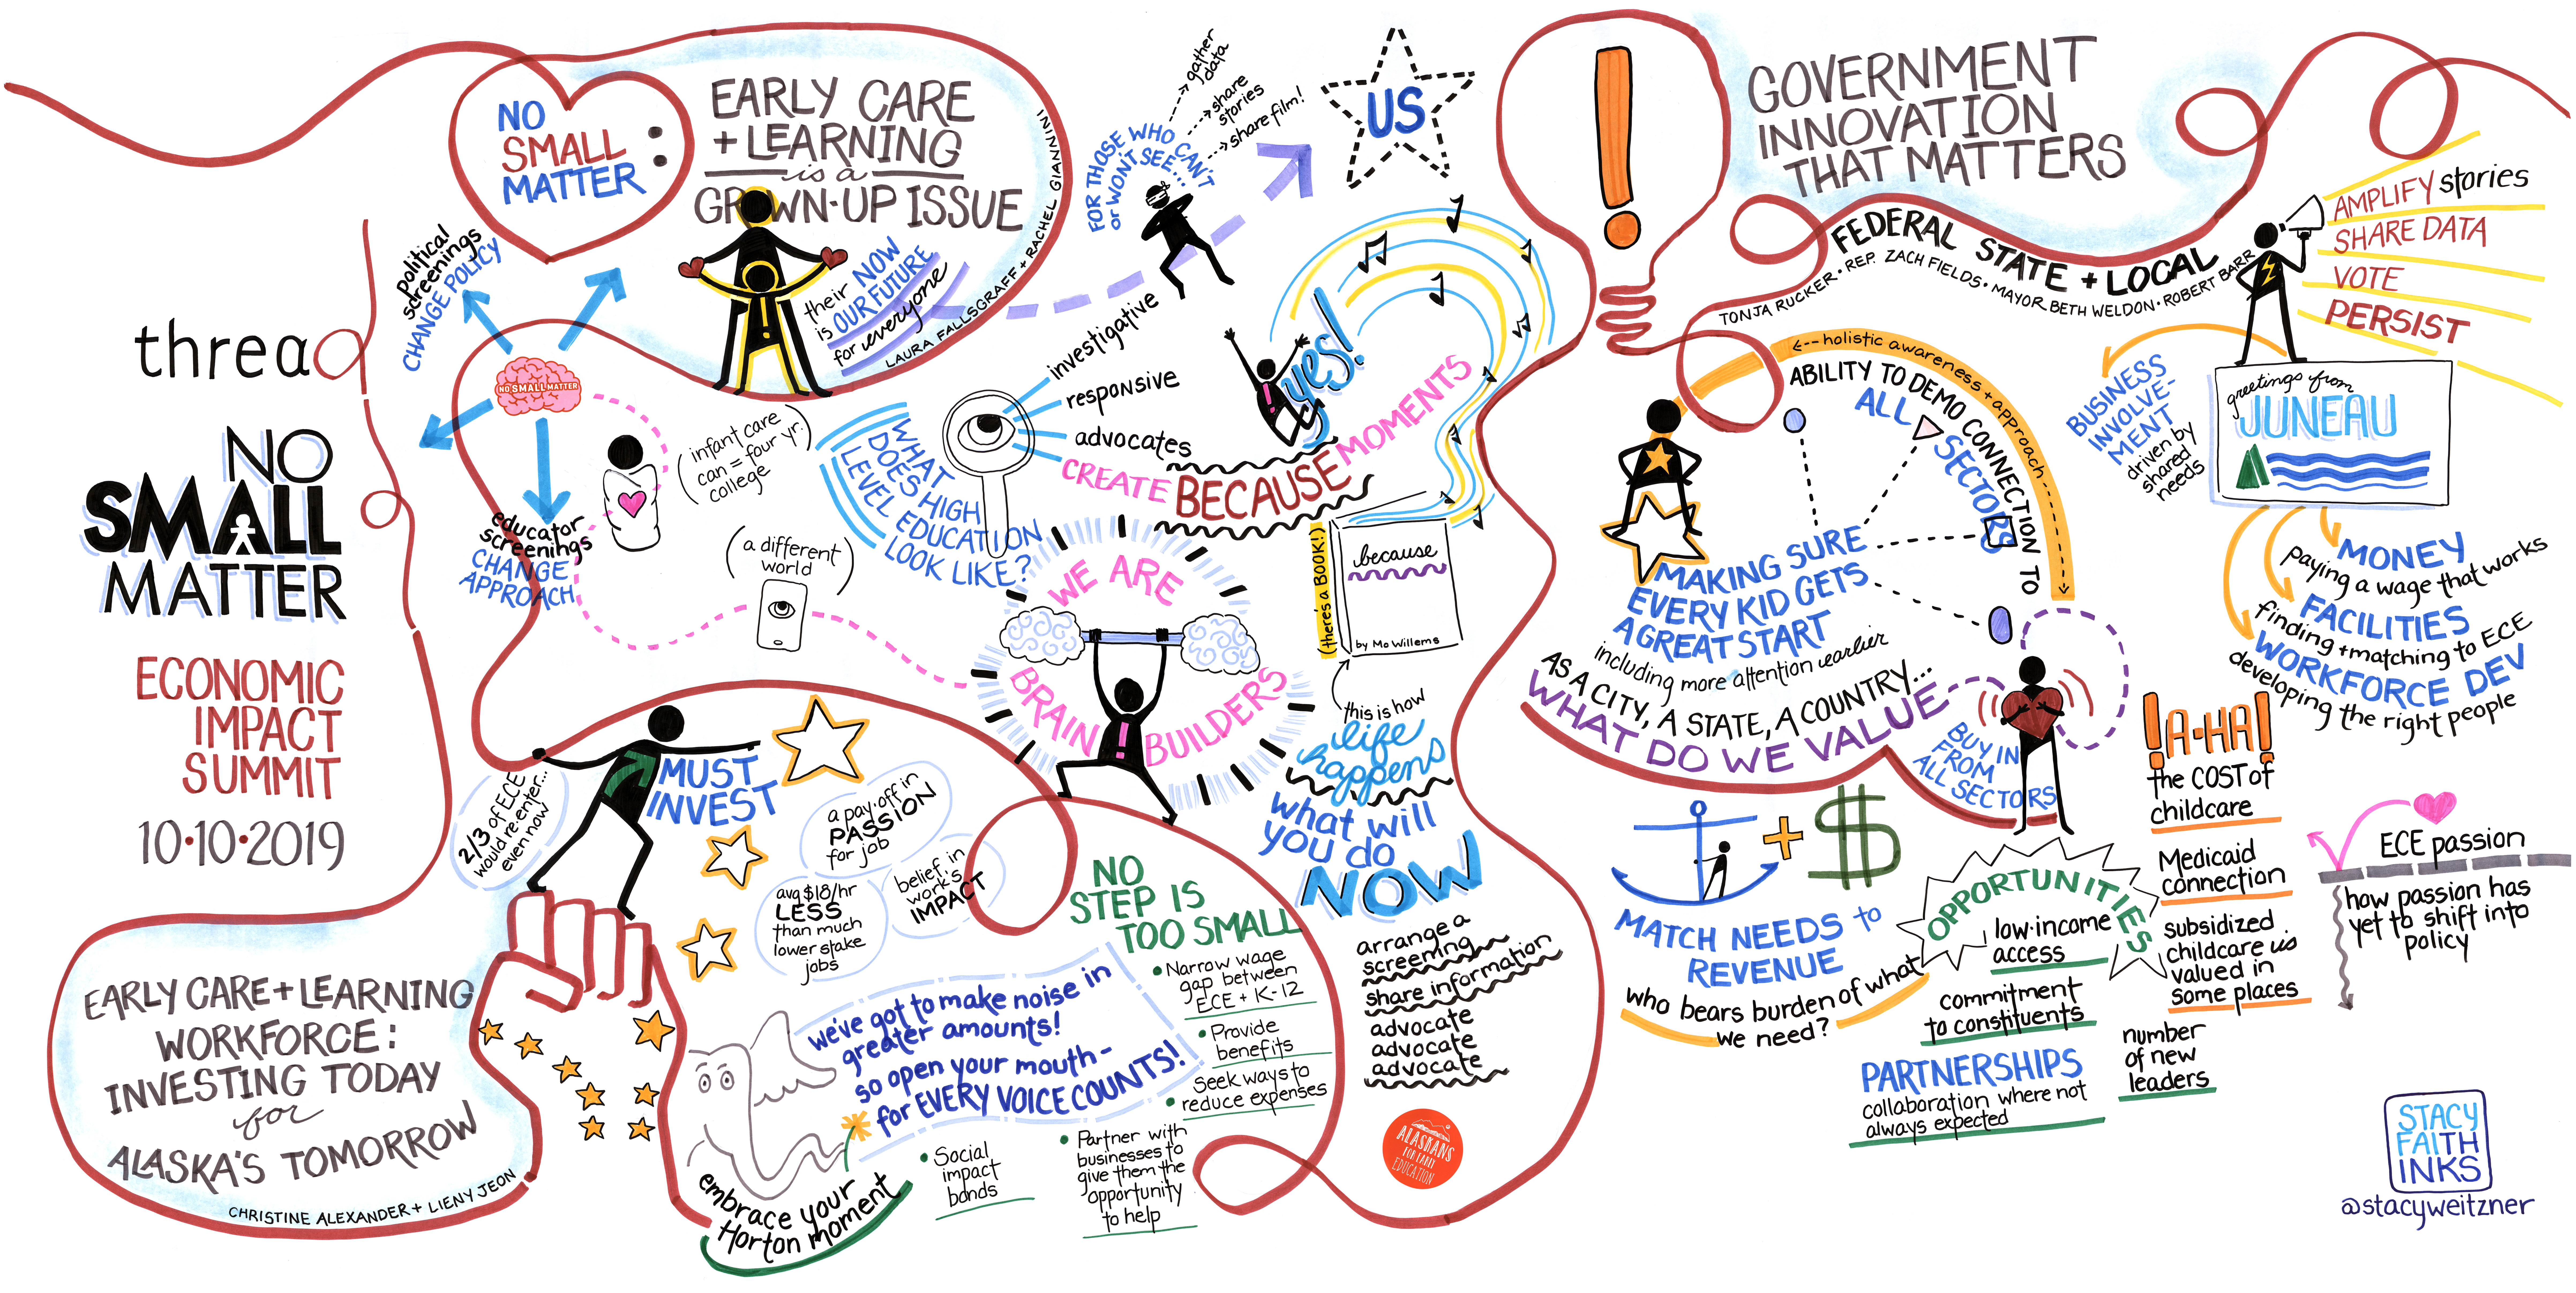 thread
NO
SMALL
MATTER
ECONOMIC
IMPACT
SUMMIT
10•10•2019
NO
SMALL
MATTER
:
EARLY CARE
+ LEARNING
is a
GROWN-UP ISSUE
their NOW
is OUR FUTURE
for everyone
LAURA FALLSGRAFF + RACHEL GIANNINI
political
screenings
CHANGE POLICY
NO SMALL MATTER
educator
screenings
CHANGE
APPROACH
(infant care
can = four yr.
college)
(a different
world)
WHAT
DOES HIGH
LEVEL EDUCATION
LOOK LIKE?
investigative
responsive
advocates
FOR THOSE WHO CAN'T
or WON'T SEE...
gather
data
share
stories
share film!
US
yes!
CREATE BECAUSE MOMENTS
WE ARE
BRAIN BUILDERS
(there's a BOOK!)
because
by Mo Willems
this is how
life
happens
what will
you do
NOW
arrange a
screening
share information
advocate
advocate
advocate
ALASKANS
FOR EARLY
EDUCATION
EARLY CARE + LEARNING
WORKFORCE:
INVESTING TODAY
for
ALASKA'S TOMORROW
CHRISTINE ALEXANDER + LIENY JEON
2/3 of ECE
would re-enter...
even now
MUST
INVEST
a pay-off in
PASSION
for job
avg $18/hr
LESS
than much
lower stake
jobs
belief in
work's
IMPACT
we've got to make noise in
greater amounts!
so open your mouth-
for EVERY VOICE COUNTS!
embrace your
Horton moment
NO
STEP IS
TOO SMALL
• Narrow wage
gap between
ECE + K-12
• Provide
benefits
• Seek ways to
reduce expenses
• Partner with
businesses to
give them the
opportunity
to help
• Social
impact
bonds
!
GOVERNMENT
INNOVATION
THAT MATTERS
FEDERAL STATE + LOCAL
TONJA RUCKER • REP. ZACH FIELDS • MAYOR BETH WELDON • ROBERT BARR
AMPLIFY stories
SHARE DATA
VOTE
PERSIST
<-- holistic awareness + approach
ABILITY TO DEMO CONNECTION TO
ALL
SECTORS
MAKING SURE
EVERY KID GETS
A GREAT START
including more attention earlier
AS A CITY, A STATE, A COUNTRY...
WHAT DO WE VALUE
BUY IN
FROM
ALL SECTORS
BUSINESS
INVOLVE-
MENT
driven by
shared
needs
greetings from
JUNEAU
MONEY
paying a wage that works
FACILITIES
finding + matching to ECE
WORKFORCE DEV
developing the right people
+ $
MATCH NEEDS to
REVENUE
who bears burden of what
we need?
OPPORTUNITIES
low-income
access
commitment
to constituents
PARTNERSHIPS
collaboration where not
always expected
number
of new
leaders
!A-HA!
the COST of
childcare
Medicaid
connection
subsidized
childcare is
valued in
some places
ECE passion
how passion has
yet to shift into
policy
STACY
FAITH
INKS
@stacyweitzner